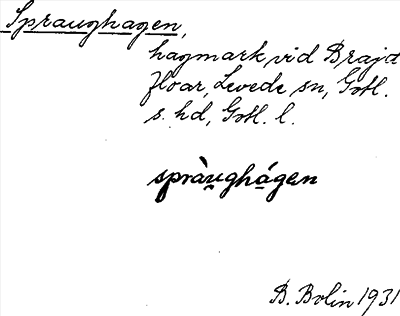 Spraughagen,
hagmark vid Brajd
floar, Levede sn, Gotl.
s. hd, Gotl. l.
spràu̲ghá̲gen
B. Bolin 1931